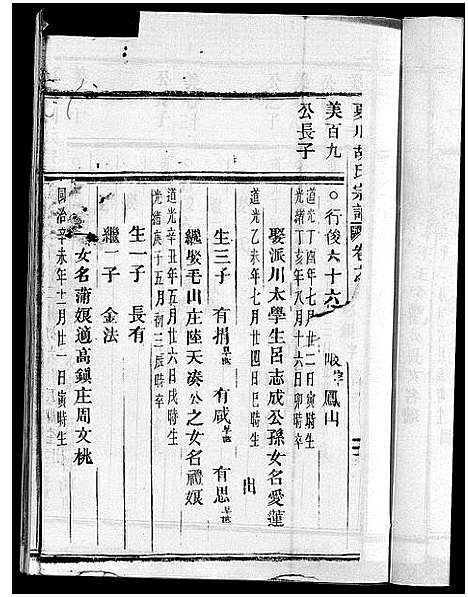 胡氏宗譜 卷
美百九
公長子
行後六十六
鳳山
道光丁酉年七月廿二日寅時生
光緒丁亥年八月十六日卯時卒
娶派川太學生呂志成公孫女名愛蓮
道光乙未年七月廿四日巳時生
出
生三子 有捐早世 有咸早世 有思早世
繼娶毛山庄陸天湊公之女名禮娘
道光辛丑年五月廿六日戌時生
光緒庚子五月初三辰時卒
生一子 長有
繼一子 金法
一女名蒲娘適高鎮庄周文桃
同治辛未年十二月廿一日寅時生